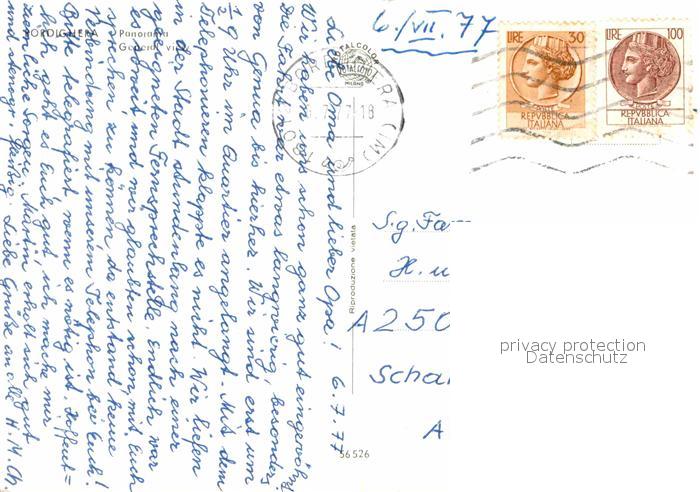 BORDIGHERA Panorama
General view
6./VII. 77
LIRE 30
REPVBBLICA
ITALIANA
LIRE 100
REPVBBLICA
ITALIANA
TOTALCOLOR
MILANO
Liebe Oma und lieber Opa! 6.7.77
Wir haben uns schon ganz gut eingewöhnt.
Die Fahrt war etwas langwierig, besonders
von Genua bis hierher. Wir sind erst um
1/2 9 Uhr im Quartier angelangt. Mit dem
Telephonieren klappte es nicht. Wir liefen
in der Stadt stundenlang nach einer
geeigneten Fernsprechstelle. Endlich war
es soweit und wir glaubten schon, mit Euch
sprechen zu können, da entstand keine
Verbindung mit unsern Telephon bei Euch!
Bitte telegrafiert, wenn es nötig ist. Hoffent=
lich geht es Euch gut, ich mache mir
ziemliche Sorgen. Martin erholt sich gut
und wenig farbig. Liebe Grüße an alle H. M. Ch.
Riproduzione vietata
S.g. Fa
H. u
A 250
Scha
A
56526
privacy protection
Datenschutz